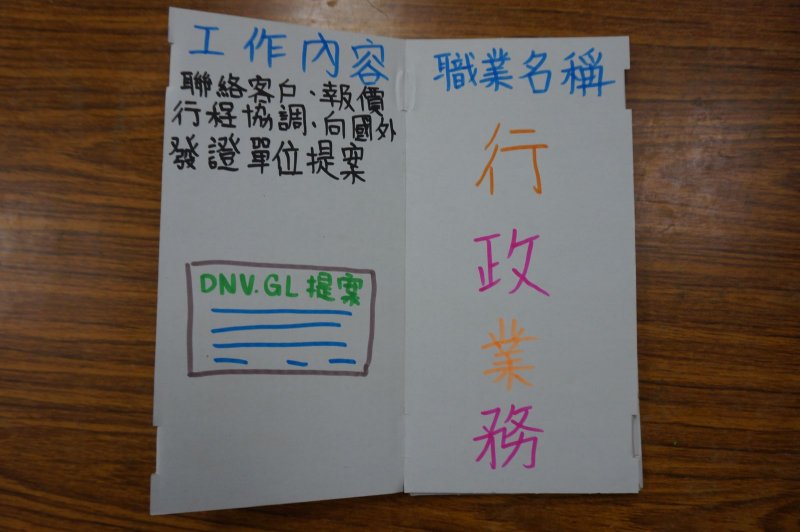 工作內容
聯絡客戶、報價
行程協調、向國外
發證單位提案
DNV.GL提案
職業名稱
行
政
業
務